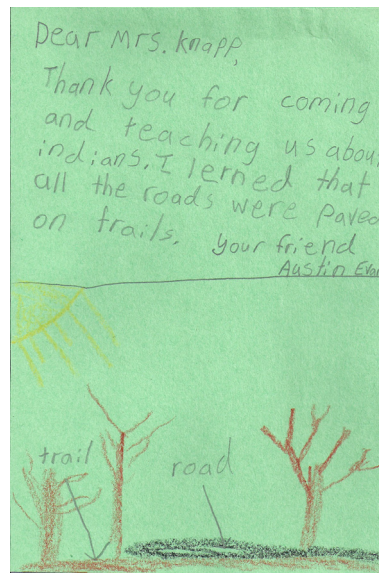 Dear Mrs. Knapp,
Thank you for coming
and teaching us abou
indians. I lerned that
all the roads were paved
on trails. your friend
Austin Evan
trail
road